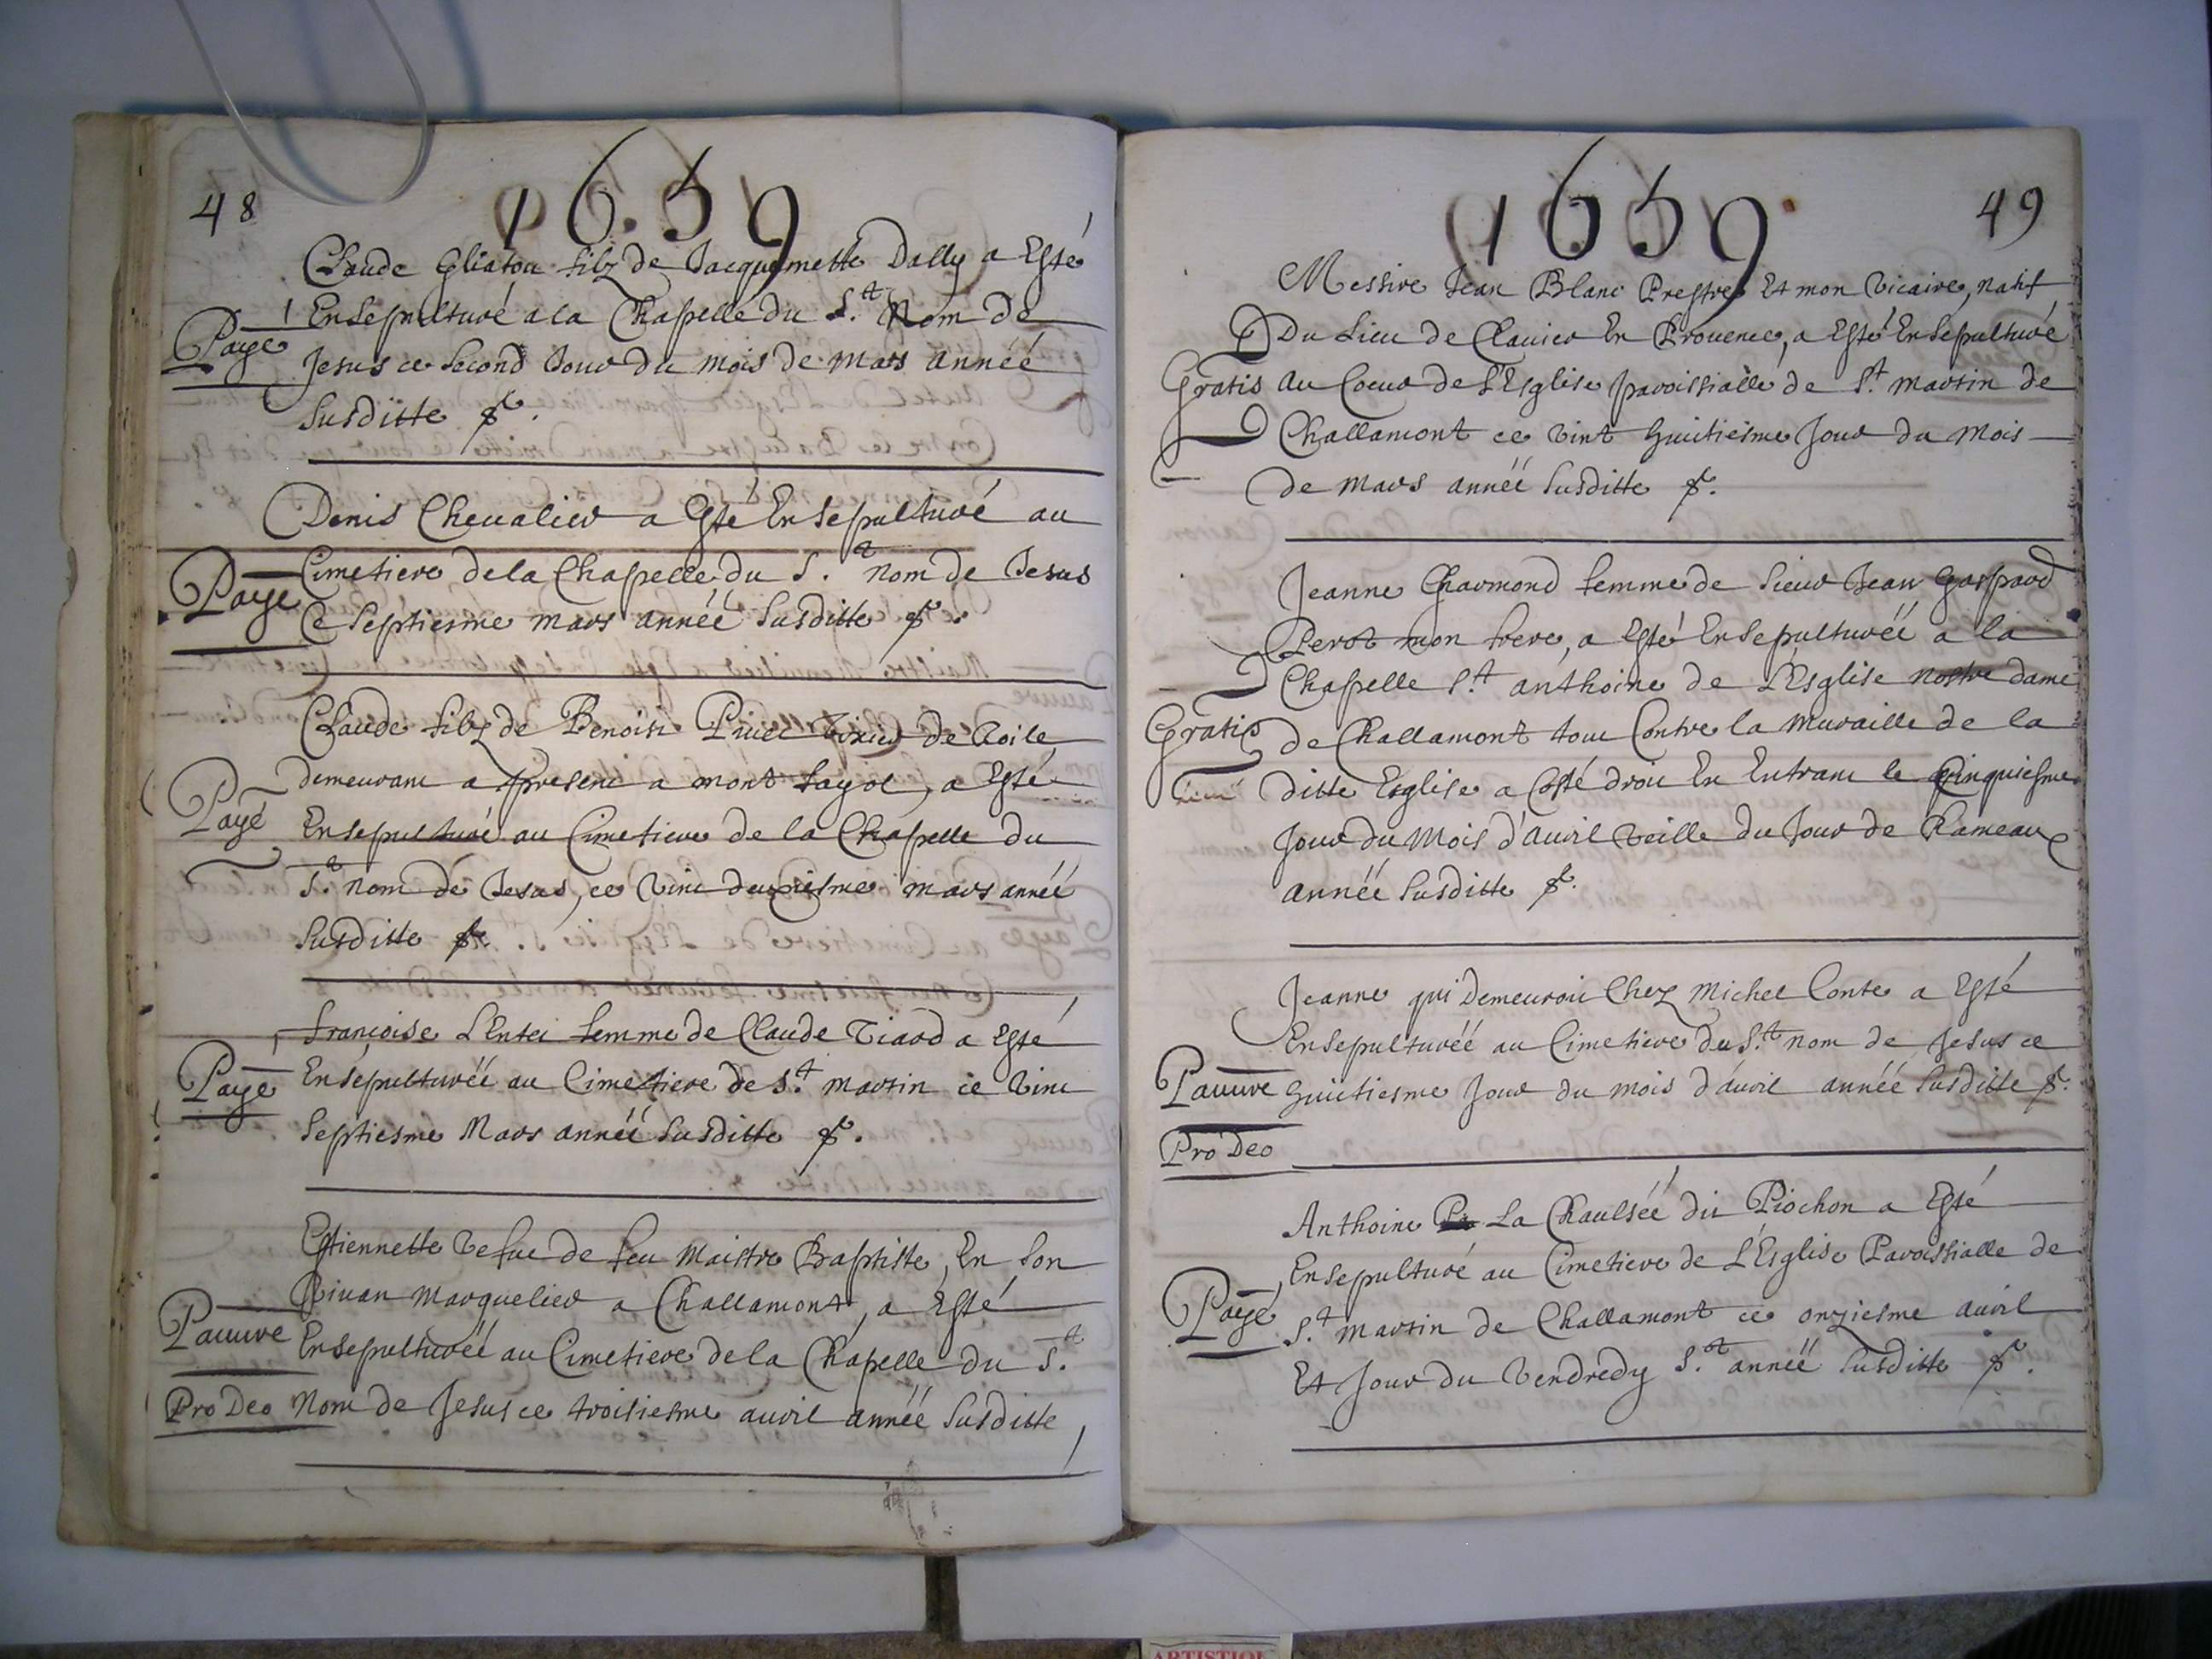 48
1659
Claude Gliaton filz de Jacquemette Dally a Esté
Ensepulturé a la Chapelle du S.t Nom de
Payé
Jesus ce second Jour du mois de Mars année
susditte &.
Denis Chevalier a Esté Ensepulturé au
Cimetiere de la Chapelle du S.t nom de Jesus
Payé
Ce septiesme mars année susditte &.
Claude filz de Benoist
demeurant a present a mont fayol, a Esté
Payé
Ensepulturé au Cimetiere de la Chapelle du
S.t nom de Jesus, ce vint deuxiesme mars année
susditte &.
françoise L'Entei femme de Claude Tiard a Esté
Payé
Ensepulturéé au Cimetiere de S.t martin ce vint
septiesme Mars année susditte &.
Estiennette vefue de feu Maistre Baptiste, En son
vivan marquelier a Challamont, a Esté
Pauure
Ensepulturéé au Cimetiere de la Chapelle du S.t
Pro Deo
Nom de Jesus ce troisiesme auril année susditte
1659
49
Messire Jean Blanc Prestre Et mon vicaire, natif
Du Lieu de Clauier En Prouence, a Esté Ensepulturé
Gratis
au Coeur de L'Esglise paroissialle de S.t martin de
Challamont ce vint huitiesme Jour du mois
de mars année susditte &.
Jeanne Charmond femme de sieur Jean Gaspard
Perot mon frere, a Esté Ensepulturéé a la
Chapelle S.t anthoine de L'Esglise nostre dame
Gratis
de Challamont tout Contre la muraille de la
ditte Esglise a Costé droit En Entrant le Cinquiesme
Jour du Mois d'auril veille du Jour de Rameaux
année susditte &.
Jeanne qui Demeuroit Chez Michel Conte a Esté
Ensepulturéé au Cimetiere du S.t nom de Jesus ce
Pauure
huictiesme Jour du mois d'auril année susditte &.
Pro Deo
Anthoine La Chaulséé dit Piochon a Esté
Ensepulturé au Cimetiere de L'Esglise Paroissialle de
Payé
S.t martin de Challamont ce onziesme auril
Et Jour du Vendredy S.t année susditte &.